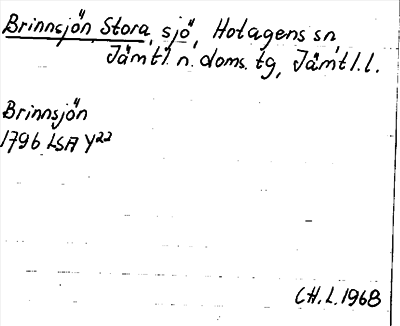 Brinnsjön Stora, sjö, Hotagens sn
Jämtl. n. doms. tg, Jämtl. l.
Brinnsjön
1796 LSA Y22
C.H.L. 1968